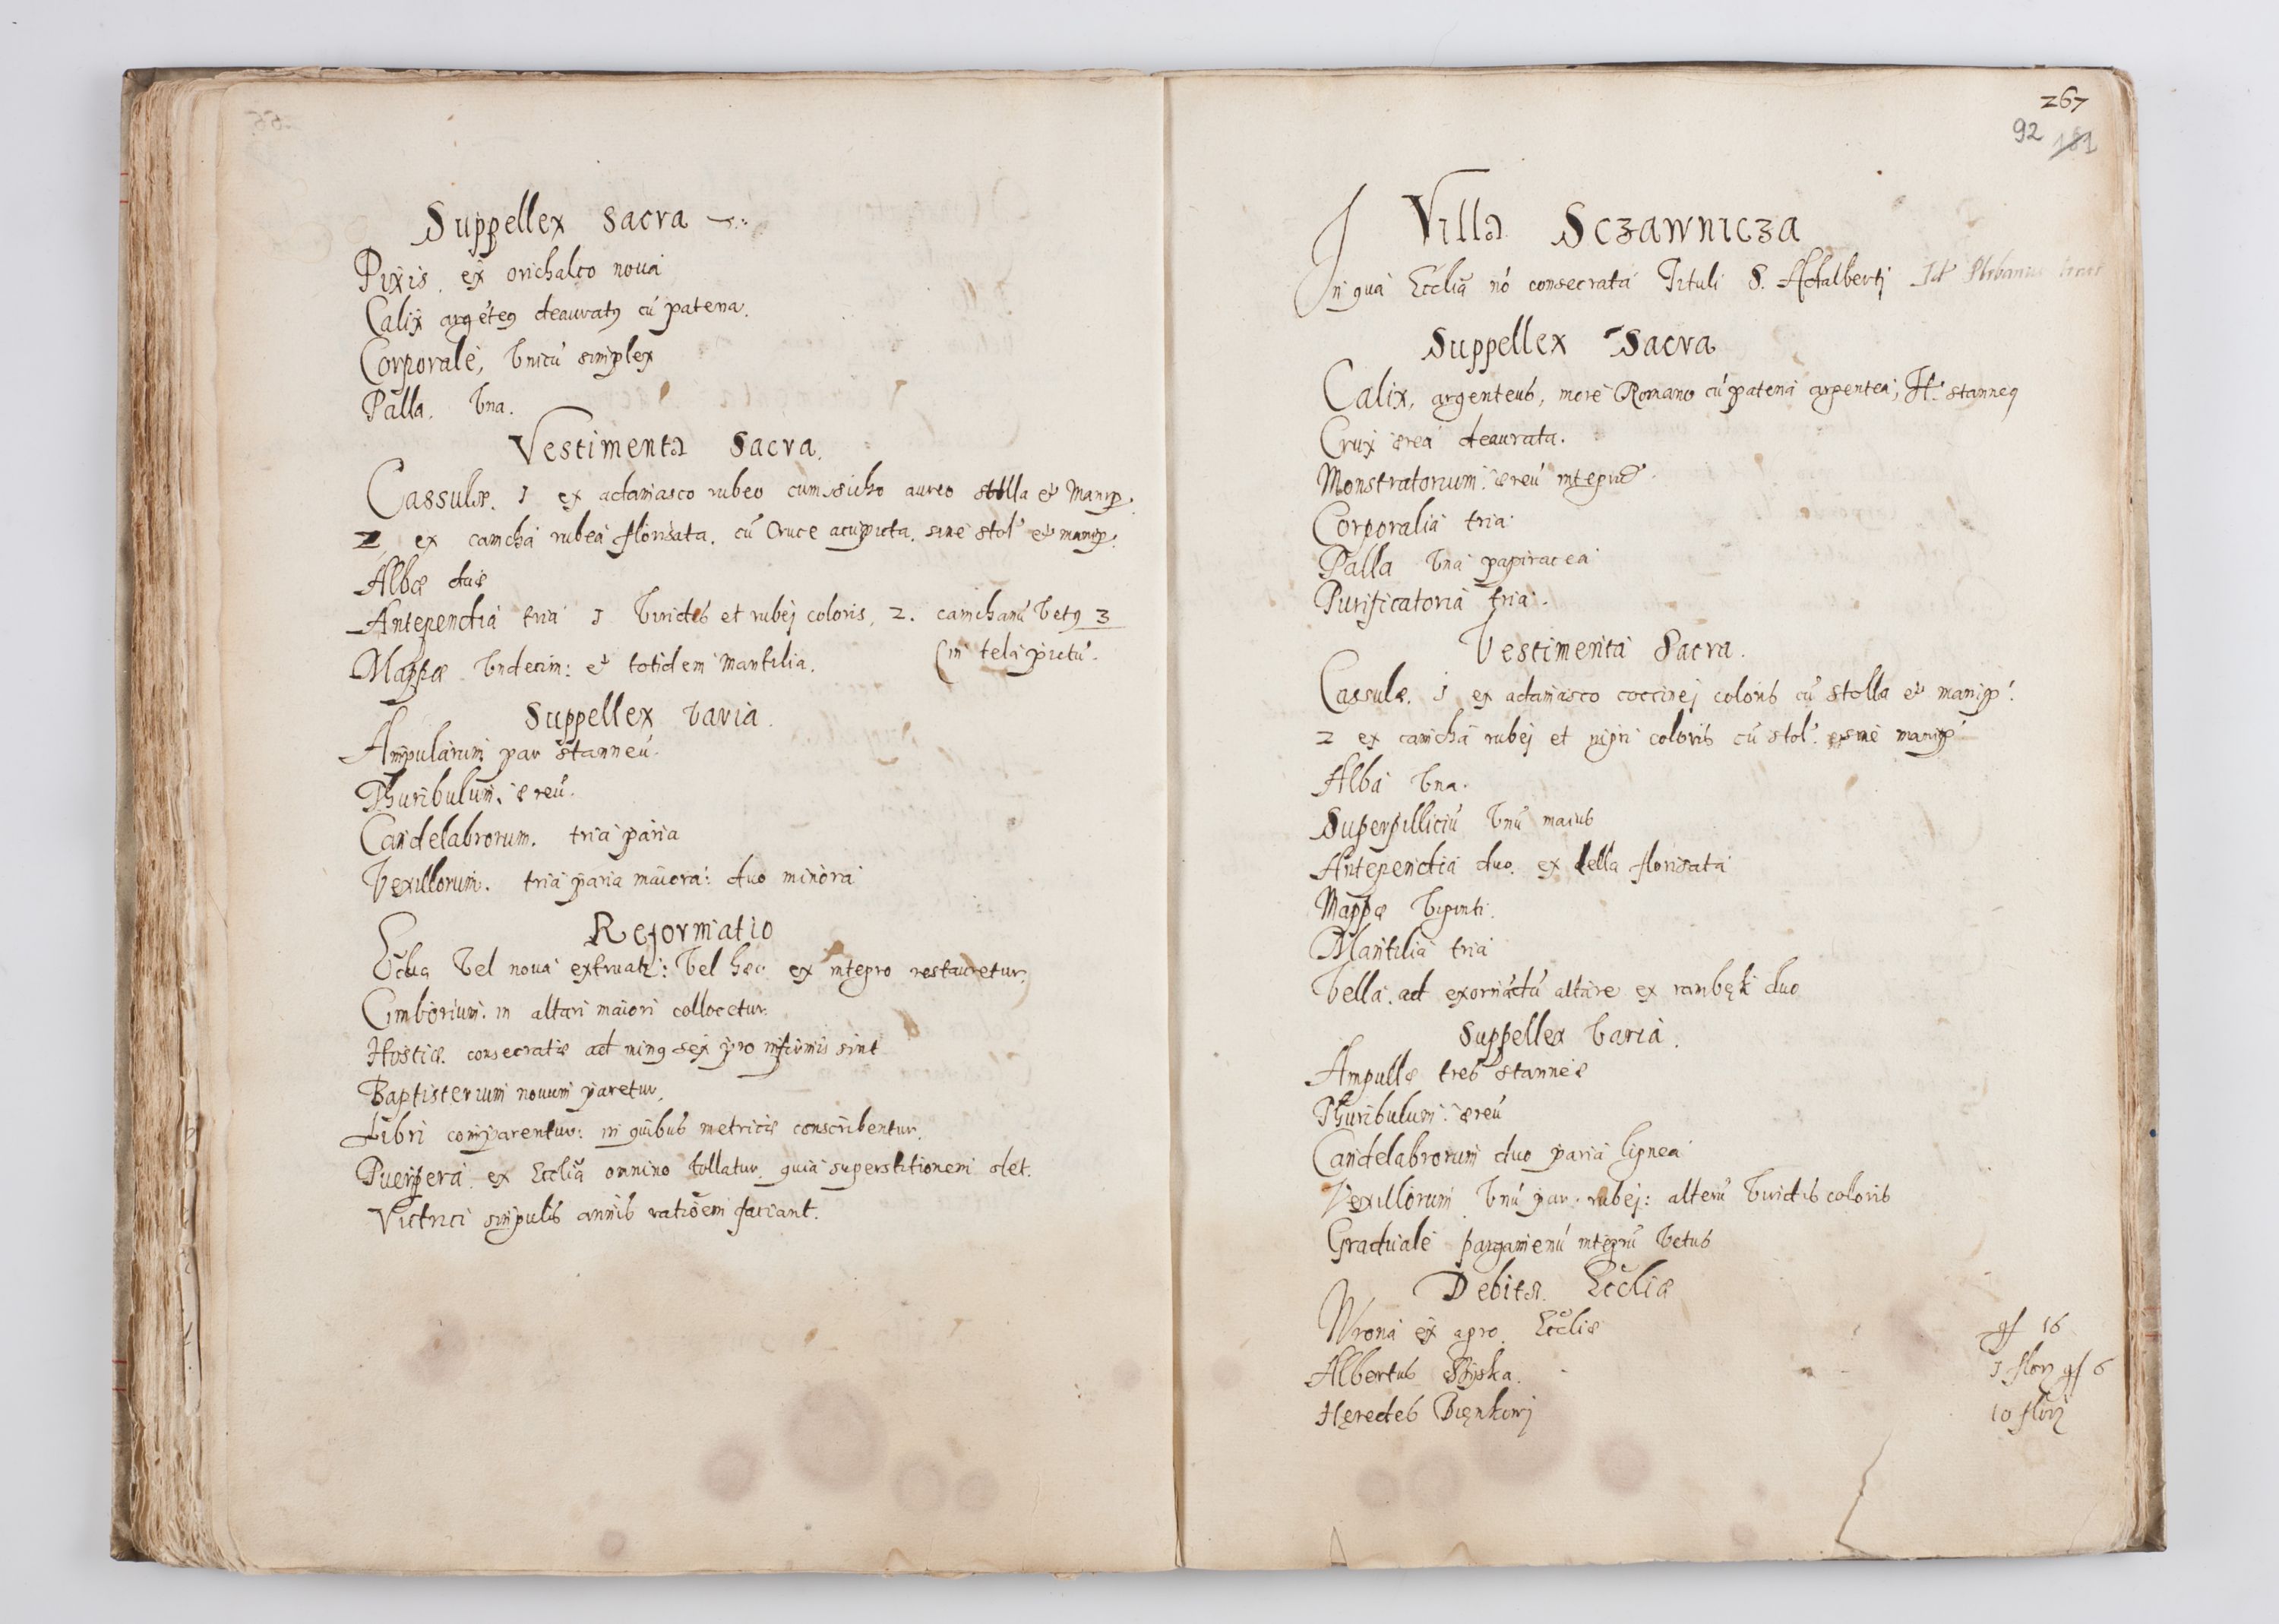 Suppellex Sacra
Pixis. ex orichalco noua
Calix argēteq deauratq cū patena.
Corporale, Vnicū simplex
Palla. Vna.
Vestimenta Sacra.
Cassulæ. 1 ex adamasco rubeo cum aureo stolla et Manip:
2 ex camcha rubea florisata. cū Cruce acupicta. sine stol et manip:
Albæ duæ
Antependia tria 1 Viridis et rubej coloris, 2. camchanū Vetq 3
(in tela pictū.
Mappæ Vndecim: et totidem Mantilia.
Suppellex Varia.
Ampularum par stanneū.
Thuribulum. æreū.
Candelabrorum. tria paria
Vexillorum. tria paria maiora: duo minora
Reformatio
Ecclia Vel noua extruatr: Vel hæc ex integro restauretur.
Cimborium. in altari maiori collocetur.
Hostiæ. consecratæ ad minq sex pro infirmis sint
Baptisterium nouum paretur.
Libri comparentur: in quibus metricæ conscribentur.
Puerpera ex Ecclia omnino tollatur. quia superstitionem olet.
Victrici singulis annis ratioem faciant.
267
92 181
In Villa Sczawnicza
In qua Ecclia nō consecrata Tituli S. Adalberti Id Vrbanus
Suppellex Sacra
Calix, argenteus, more Romano cū patena argentea, It stanneq
Crux ærea deaurata.
Monstratorium. æreū integrū.
Corporalia tria
Palla Vna papiracea
Purificatoria tria.
Vestimenta Sacra.
Cassulæ. 1 ex adamasco coccinej coloris cū stolla et manip:
2 ex camcha rubej et nigri coloris cū stol. sine manip
Alba Vna.
Superpilliciū Vnū maius
Antependia duo. ex tella florisata
Mappæ Viginti.
Mantilia tria
Vella. ad exornādū altare ex rambęk duo
Suppellex Varia.
Ampullæ tres stanneæ
Thuribulum. æreū
Candelabrorum duo paria lignea
Vexillorum Vnū par. rubej: alterū Viridis coloris
Graduale pargamenū integrū Vetus
Debita Eccliæ
Wrona ex agro Eccliæ gs 16
Albertus 1 flor gs 6
Hęredes Bięnkowj 10 flor